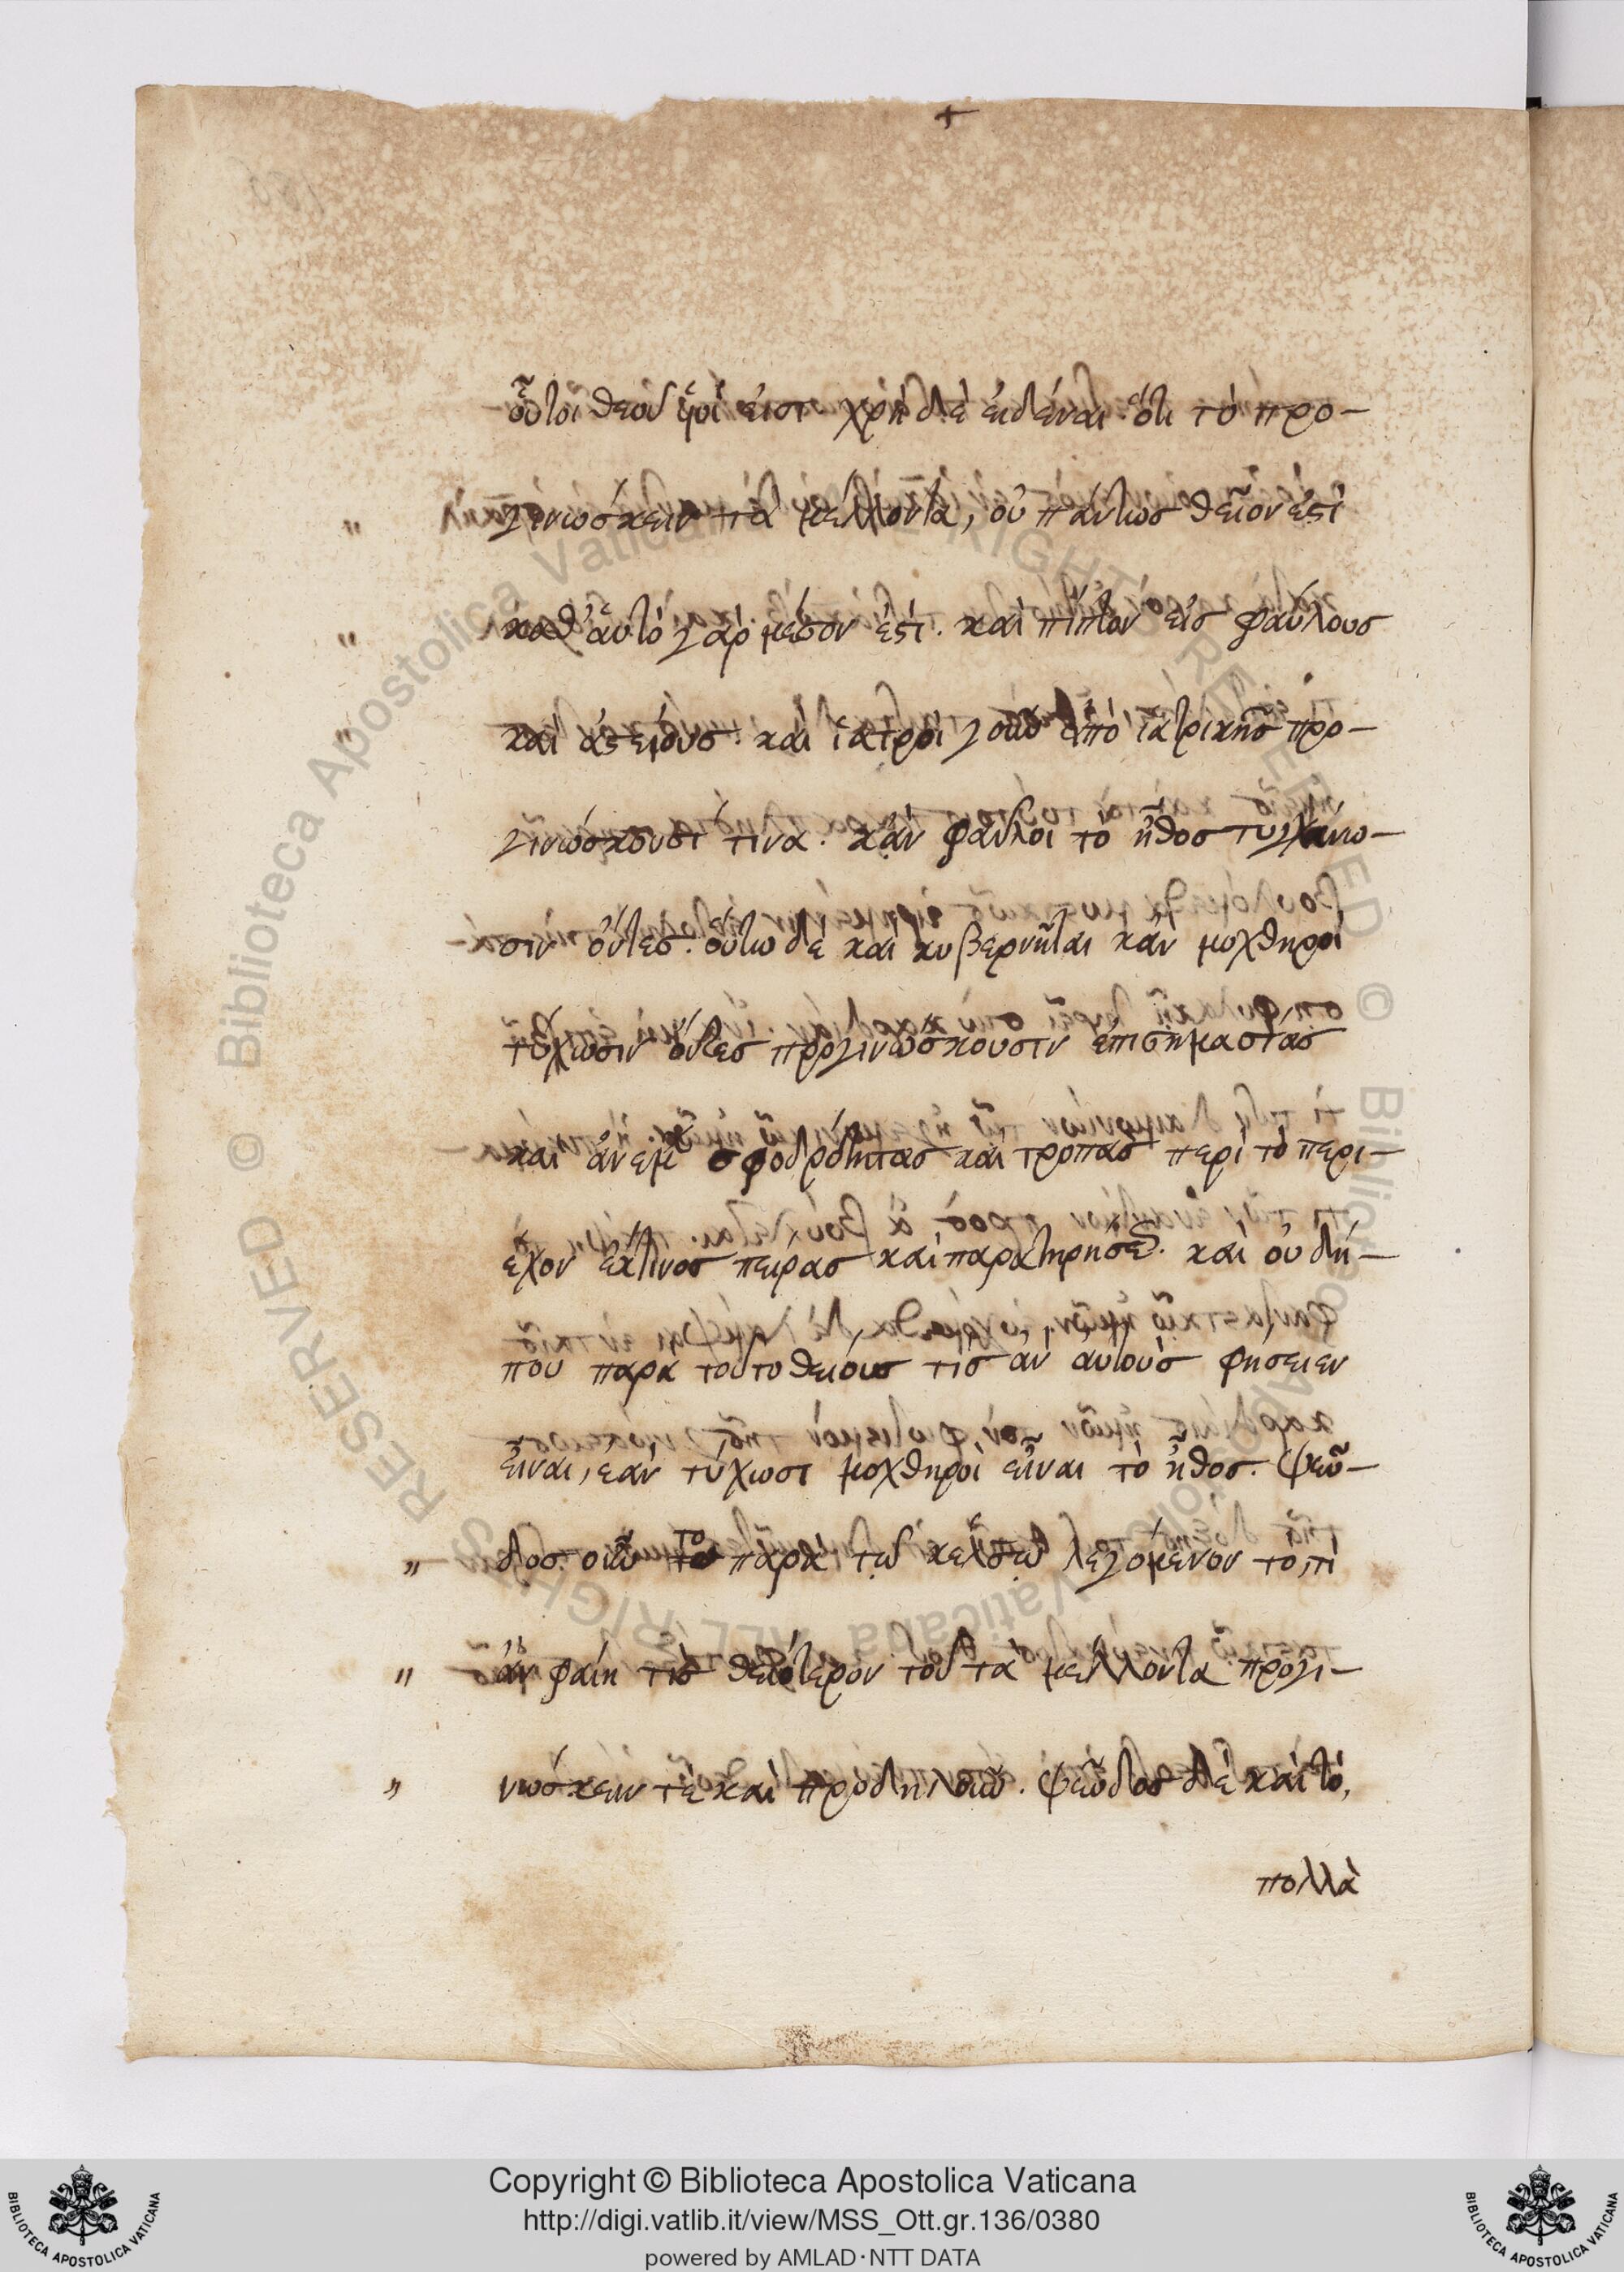 +
οὗτοι θεοῦ υἱοί εἰσι χρὴ δὲ εἰδέναι ὅτι τὸ προ-
" γινώσκειν τὰ μέλλοντα, οὐ πάντως θεῖον ἐστὶ
" καθ' αὑτὸ γὰρ μέσον ἐστὶ. καὶ πίπτον εἰς φαύλους
" καὶ ἀστείους. καὶ ἰατροὶ γοῦν ἀπὸ ἰατρικῆς προ-
γινώσκουσί τινα. κἂν φαῦλοι τὸ ἦθος τυγχάνω-
σιν ὄντες. οὕτω δὲ καὶ κυβερνῆται κἂν μοχθηροὶ
τύχωσιν ὄντες προγινώσκουσιν ἐπισημασίας
καὶ ἀνέμων σφοδρότητας καὶ τροπὰς περὶ τὸ περι-
έχον ἔκ τινος πείρας καὶ παρατηρήσεως. καὶ οὐ δή-
που παρὰ τοῦτο θείους τὶς ἂν αὐτοὺς φήσειεν
εἶναι, ἐὰν τύχωσι μοχθηροὶ εἶναι τὸ ἦθος. ψεῦ-
" δος οὖν τὸ παρὰ τῷ κέλσῳ λεγόμενον τό, τί
" ἂν φαίη τὶς θειότερον τοῦ τὰ μέλλοντα προγι-
" νώσκειν τὲ καὶ προδηλοῦν. ψεῦδος δὲ καὶ τὸ,
πολλὰ
Copyright © Biblioteca Apostolica Vaticana
http://digi.vatlib.it/view/MSS_Ott.gr.136/0380
powered by AMLAD·NTT DATA
BIBLIOTECA APOSTOLICA VATICANA
BIBLIOTECA APOSTOLICA VATICANA
© Biblioteca Apostolica Vaticana ALL RIGHTS RESERVED
© Biblioteca Apostolica Vaticana ALL RIGHTS RESERVED